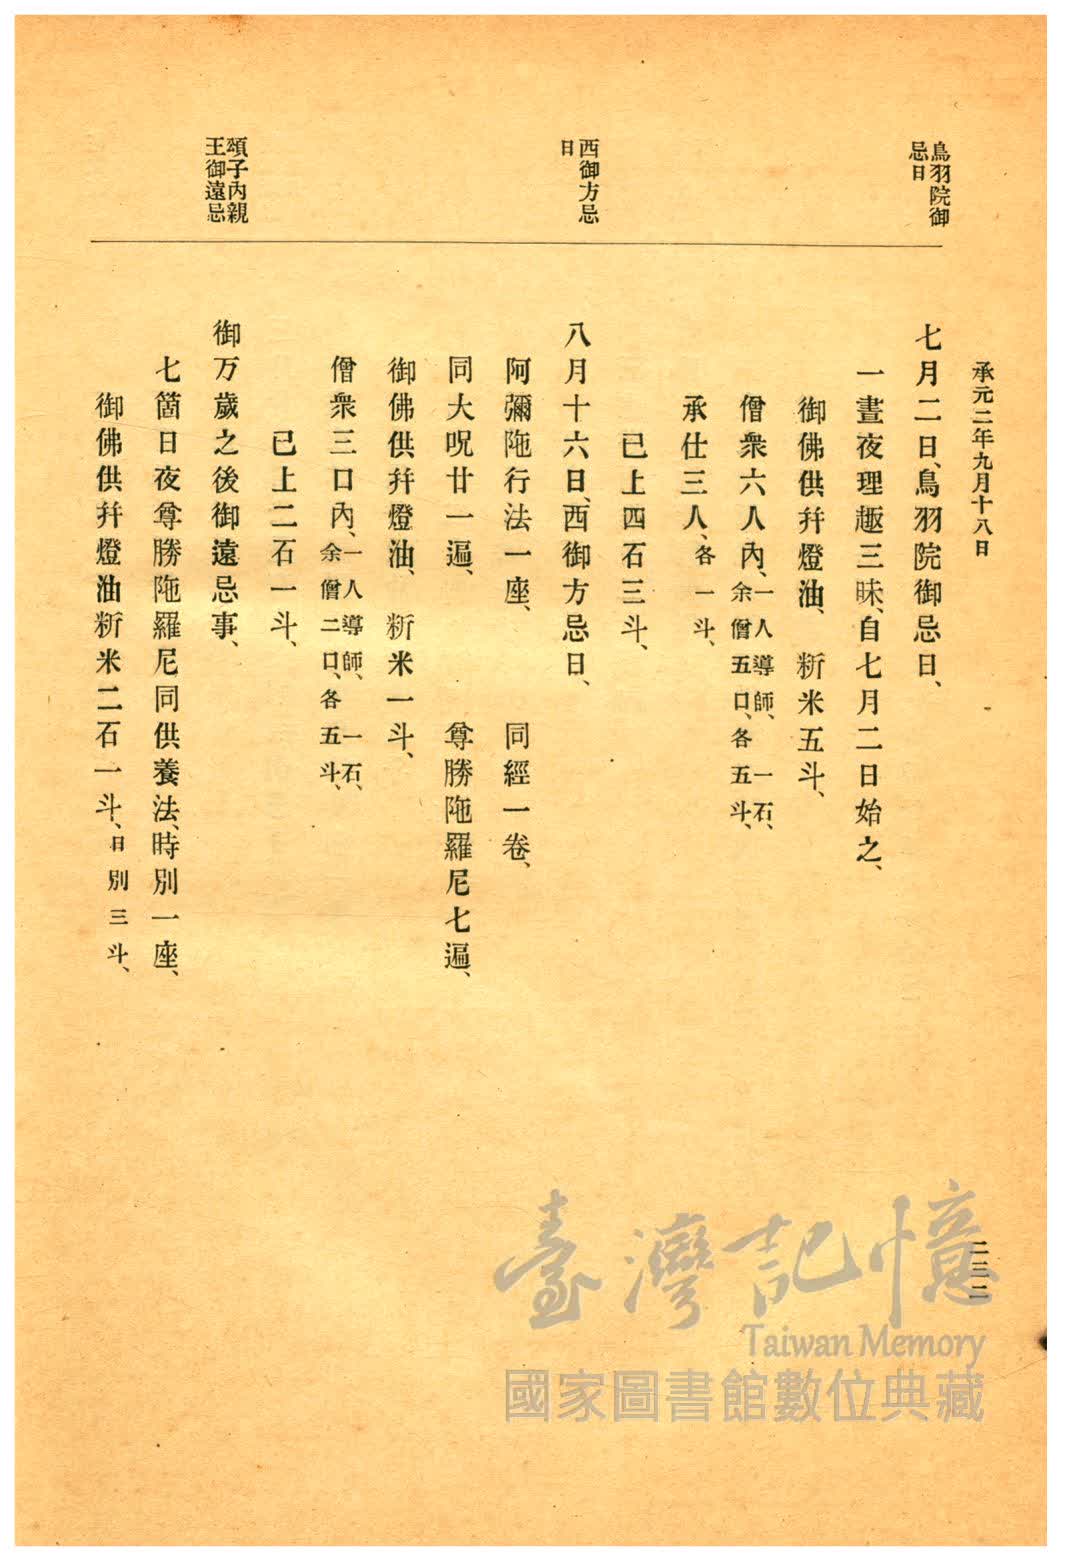 承元二年九月十八日
鳥羽院御
忌日
七月二日、鳥羽院御忌日、
一晝夜理趣三昧、自七月二日始之、
御佛供幷燈油、 䉼米五斗、
僧衆六人內、一人導師、一石、
余僧五口、各五斗、
承仕三人、各一斗、
已上四石三斗、
西御方忌
日
八月十六日、西御方忌日、
阿彌陁行法一座、 同經一卷、
同大呪廿一遍、 尊勝陁羅尼七遍、
御佛供幷燈油、 䉼米一斗、
僧衆三口內、一人導師、一石、
余僧二口、各五斗、
已上二石一斗、
頌子內親
王御遠忌
御万歲之後御遠忌事、
七箇日夜尊勝陁羅尼同供養法、時別一座、
御佛供幷燈油䉼米二石一斗、日別三斗、
二三二
臺灣記憶
Taiwan Memory
國家圖書館數位典藏